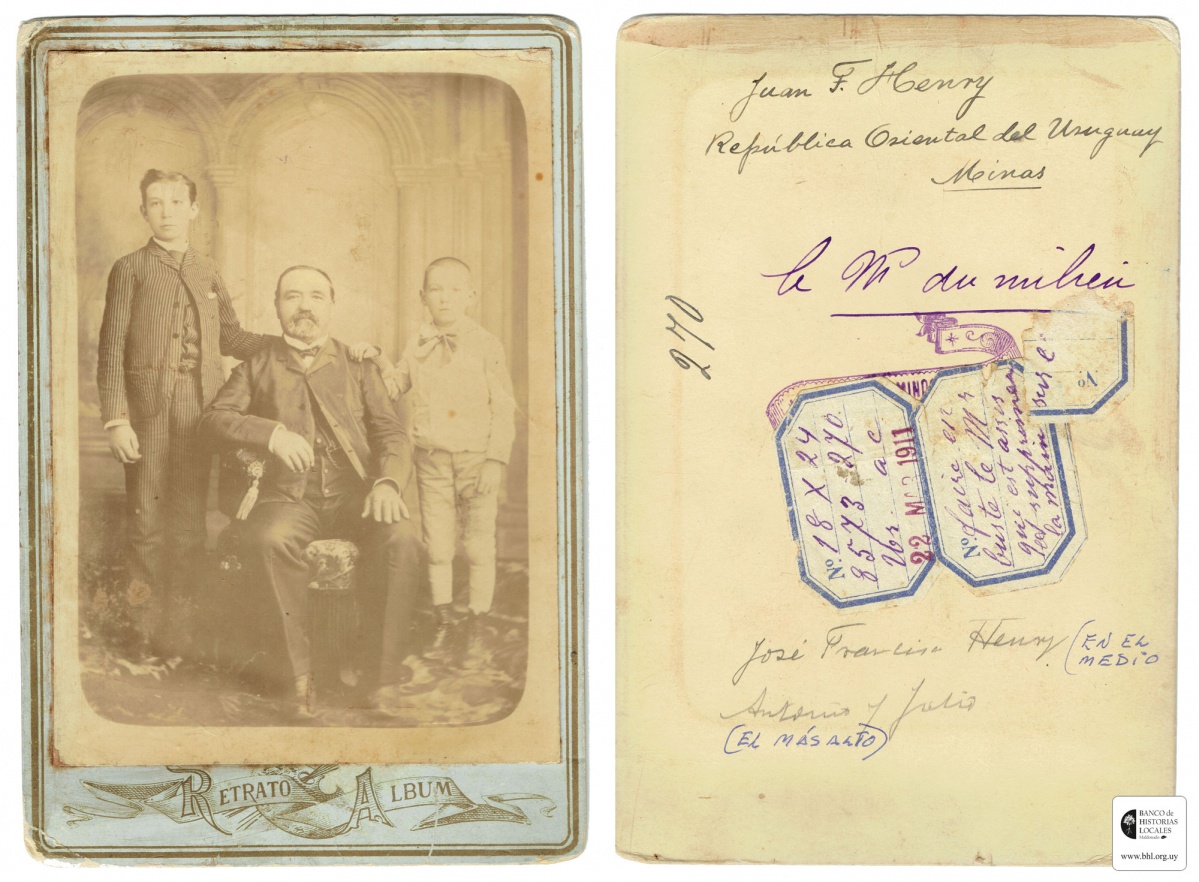 RETRATO ALBUM
Juan F. Henry
República Oriental del Uruguay
Minas
le Mr du milieu
270
No. 18 X 24
8573 270
ac
22 1911
No. faire en
buste le Mr
qui est assis
et supprimer
la main sur l'
José Francisco Henry (EN EL
MEDIO
Antonio y Julio
(EL MÁS ALTO)
BANCO de
HISTORIAS
LOCALES
Maldonado
www.bhl.org.uy